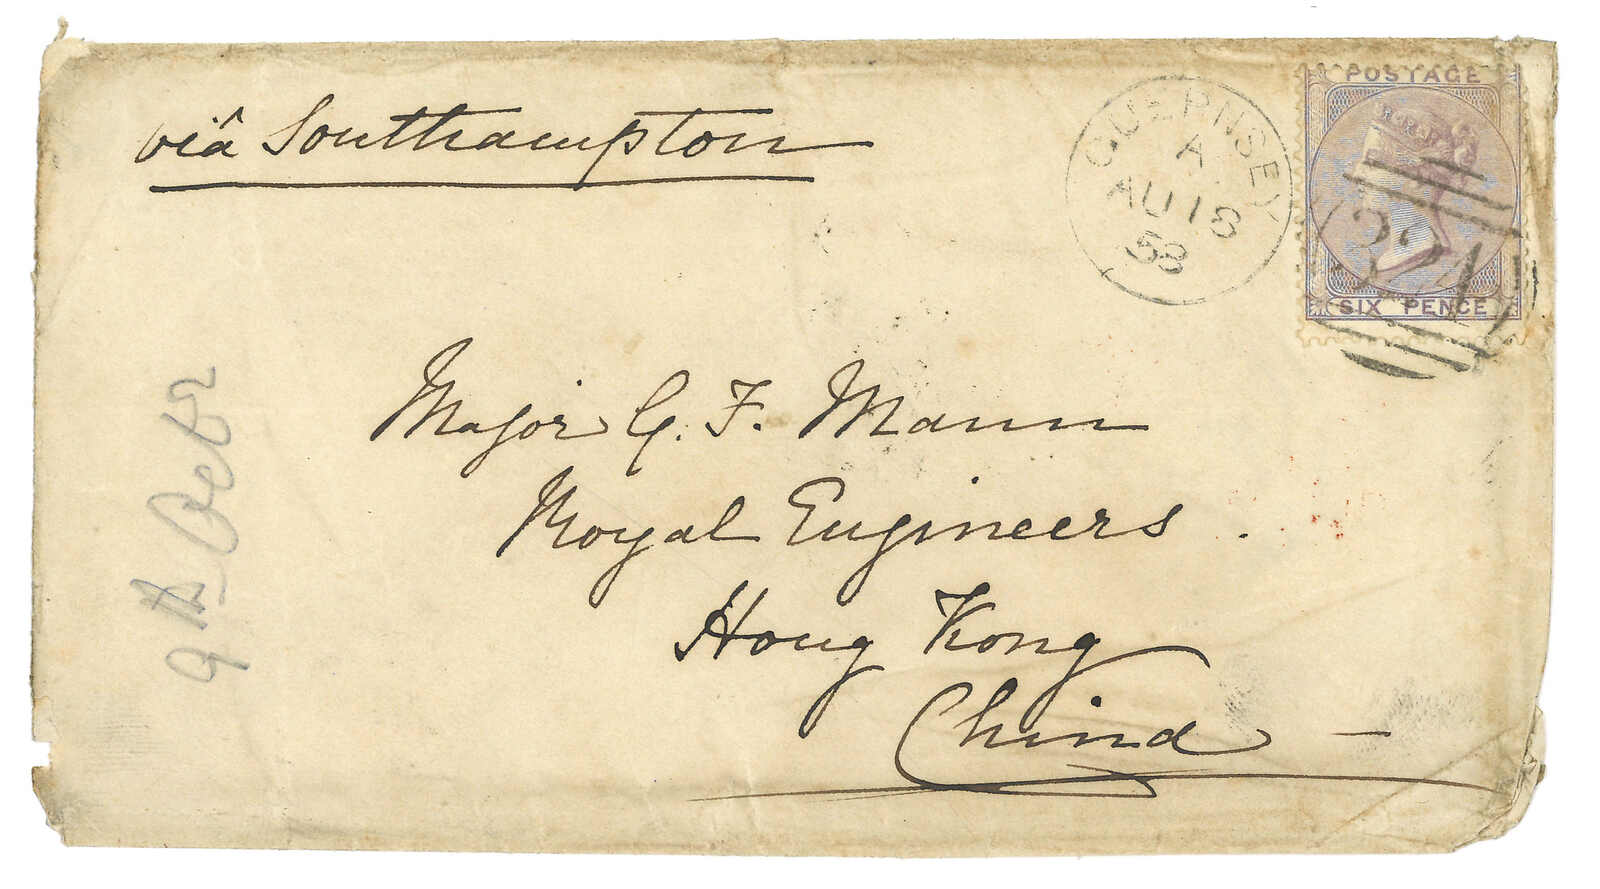 viâ Southampton
GUERNSEY
A
AU 18
58
POSTAGE
SIX PENCE
Major G. F. Mann
Royal Engineers.
Hong Kong
China
9th Octbr